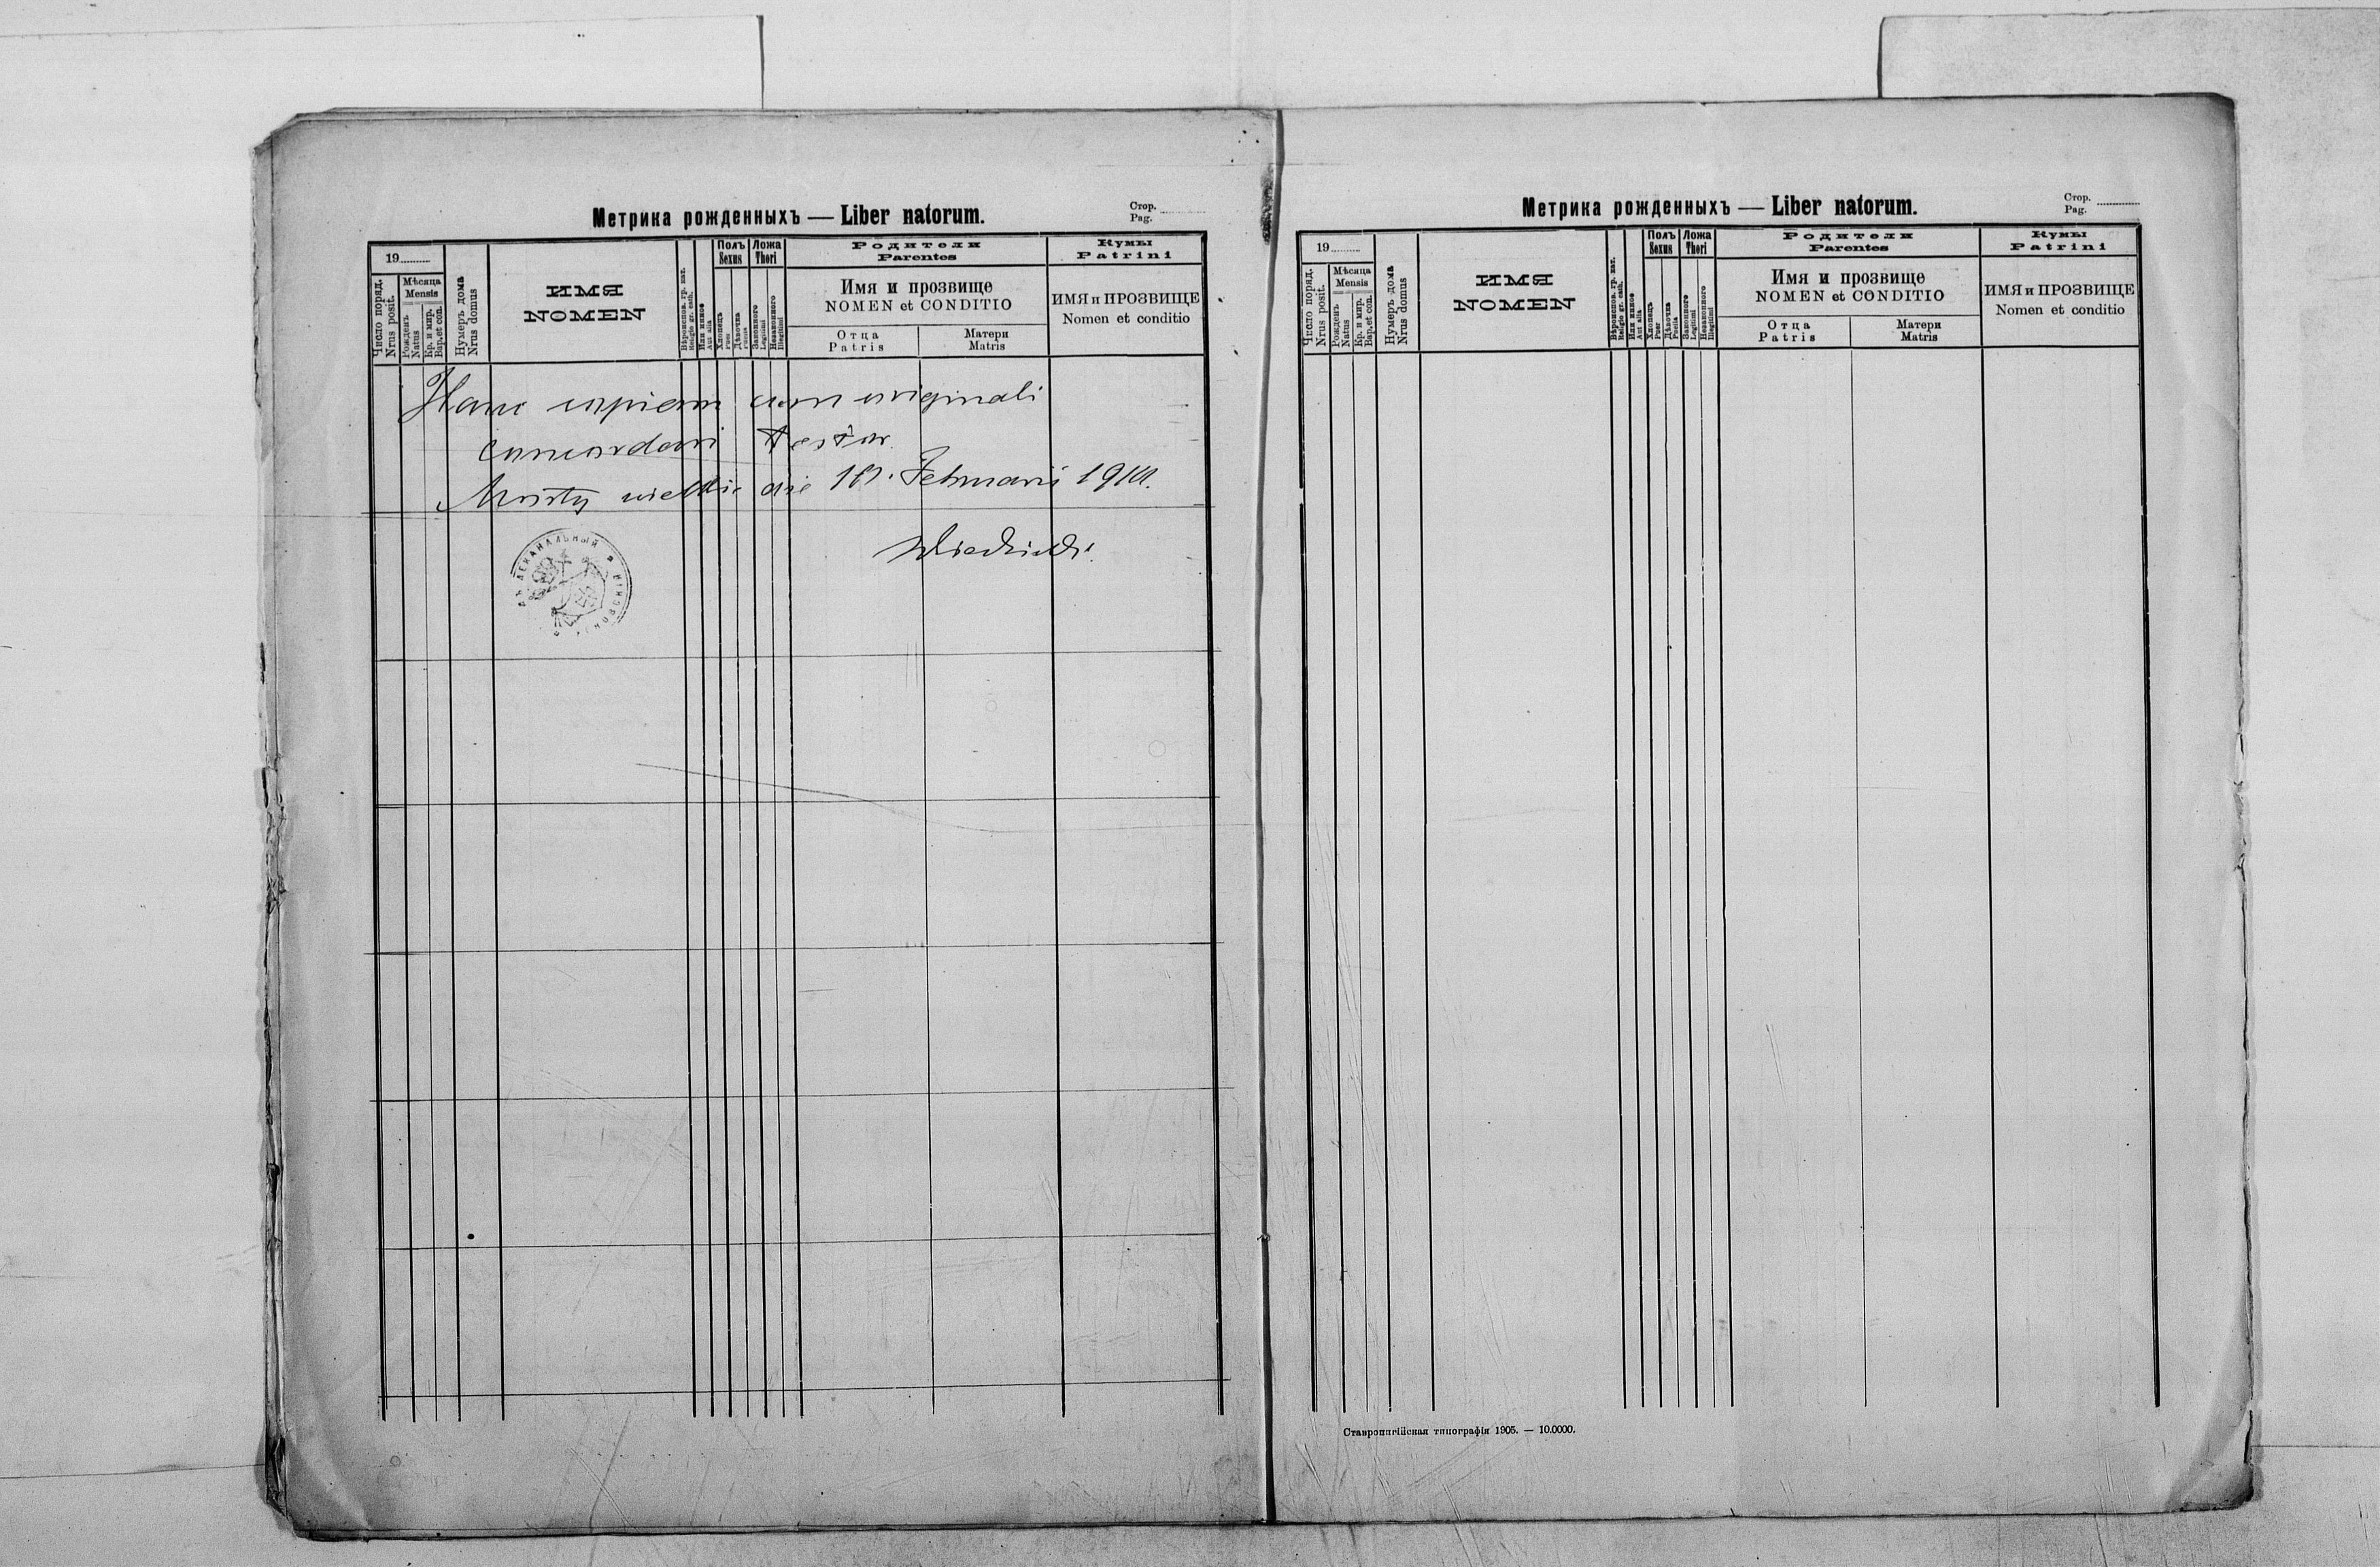 Метрика рожденныхъ — Liber natorum.
Стор.
Pag.
19
Число поряд.
Nrus posit.
Мѣсяца
Mensis
Рожденъ
Natus
Кр. и мир.
Bap. et con.
Нумеръ дома
Nrus domus
ИМЯ
NOMEN
Вѣроиспов. гр. кат.
Religio gr. cath.
Или инное
Aut alia
Полъ
Sexus
Хлопець
Puer
Дѣвочка
Puella
Ложа
Thori
Законного
Legitimi
Незаконного
Illegitimi
Родители
Parentes
Имя и прозвище
NOMEN et CONDITIO
Отца
Patris
Матери
Matris
Кумы
Patrini
ИМЯ и ПРОЗВИЩЕ
Nomen et conditio
Hanc copiam cum originali
concordari testor
Mosty wielkie die Februarii
ДЕКАНАЛЬНЫЙ
Метрика рожденныхъ — Liber natorum.
Стор.
Pag.
19
Число поряд.
Nrus posit.
Мѣсяца
Mensis
Рожденъ
Natus
Кр. и мир.
Bap. et con.
Нумеръ дома
Nrus domus
ИМЯ
NOMEN
Вѣроиспов. гр. кат.
Religio gr. cath.
Или инное
Aut alia
Полъ
Sexus
Хлопець
Puer
Дѣвочка
Puella
Ложа
Thori
Законного
Legitimi
Незаконного
Illegitimi
Родители
Parentes
Имя и прозвище
NOMEN et CONDITIO
Отца
Patris
Матери
Matris
Кумы
Patrini
ИМЯ и ПРОЗВИЩЕ
Nomen et conditio
Ставропигійская типографія 1905. — 10.0000.